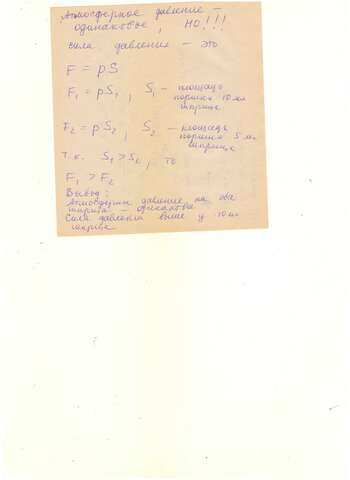 Атмосферное давление –
одинаковое, НО!!!
сила давления – это
F = pS
F₁ = pS₁, S₁ – площадь
поршня 10 мл
шприца
F₂ = pS₂, S₂ – площадь
поршня 5 мл
шприца
т.к. S₁ > S₂, то
F₁ > F₂
Вывод:
Атмосферное давление на оба
шприца – одинаково
Сила давления выше у 10 мл
шприца